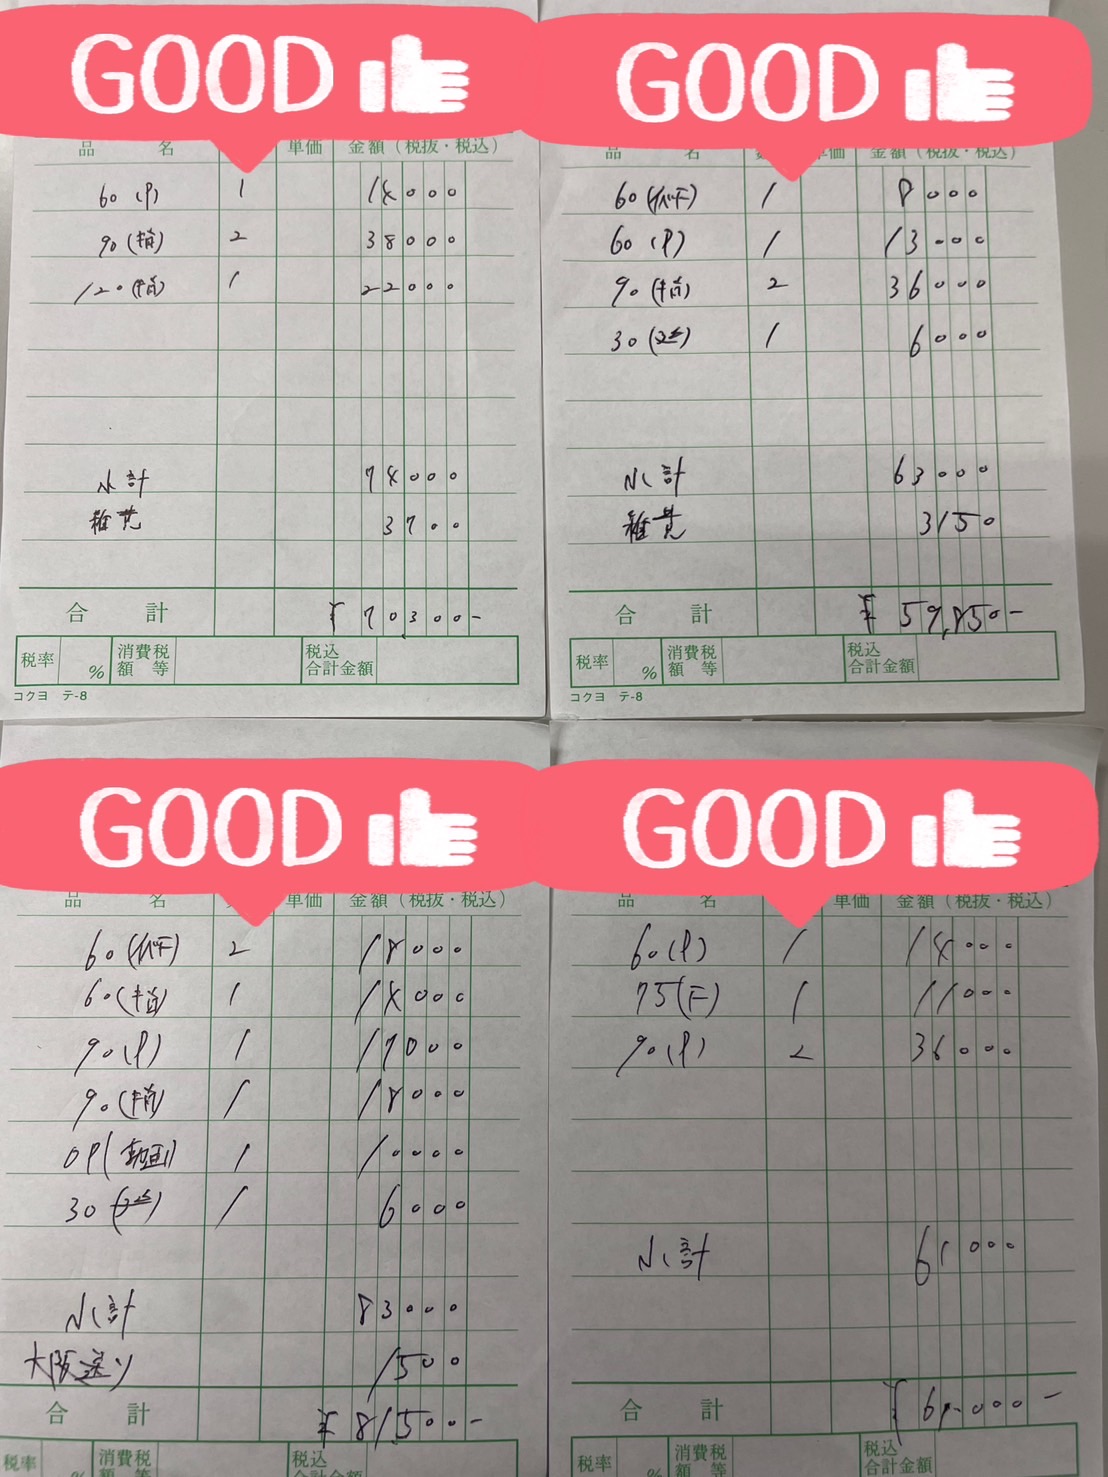 GOOD
品 名 単価 金額（税抜・税込）
60 (P) 1 14000
90 (指) 2 38000
120 (指) 1 22000
小計 74000
雑費 3700
合 計 ¥70,300-
税率 % 消費税額等 税込合計金額
コクヨ テ-8
GOOD
品 名 数 単価 金額（税抜・税込）
60 1 8000
60 (P) 1 13000
90 (指) 2 36000
30 1 6000
小計 63000
雑費 3150
合 計 ¥59,850-
税率 % 消費税額等 税込合計金額
コクヨ テ-8
GOOD
品 名 単価 金額（税抜・税込）
60 2 18000
60 (指) 1 14000
90 (P) 1 17000
90 (指) 1 18000
OP(動画) 1 10000
30 1 6000
小計 83000
大阪送り 1500
合 計 ¥81,500-
税率 % 消費税額等 税込合計金額
GOOD
品 名 単価 金額（税抜・税込）
60 (P) 1 14000
75 (F) 1 11000
90 (P) 2 36000
小計 61000
合 計 ¥61,000-
税率 % 消費税額等 税込合計金額